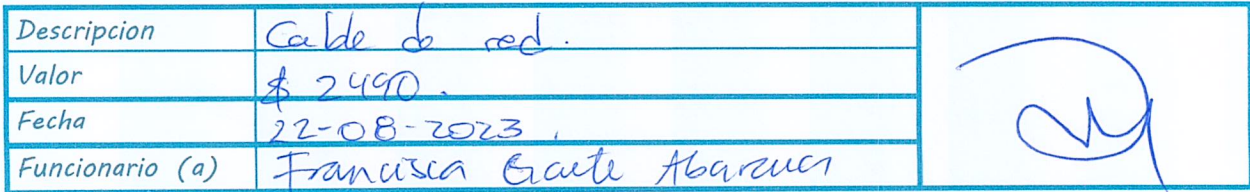 Descripcion Calde de red.
Valor $ 2490.
Fecha 22-08-2023.
Funcionario (a) Francisca Gaete Abarzua